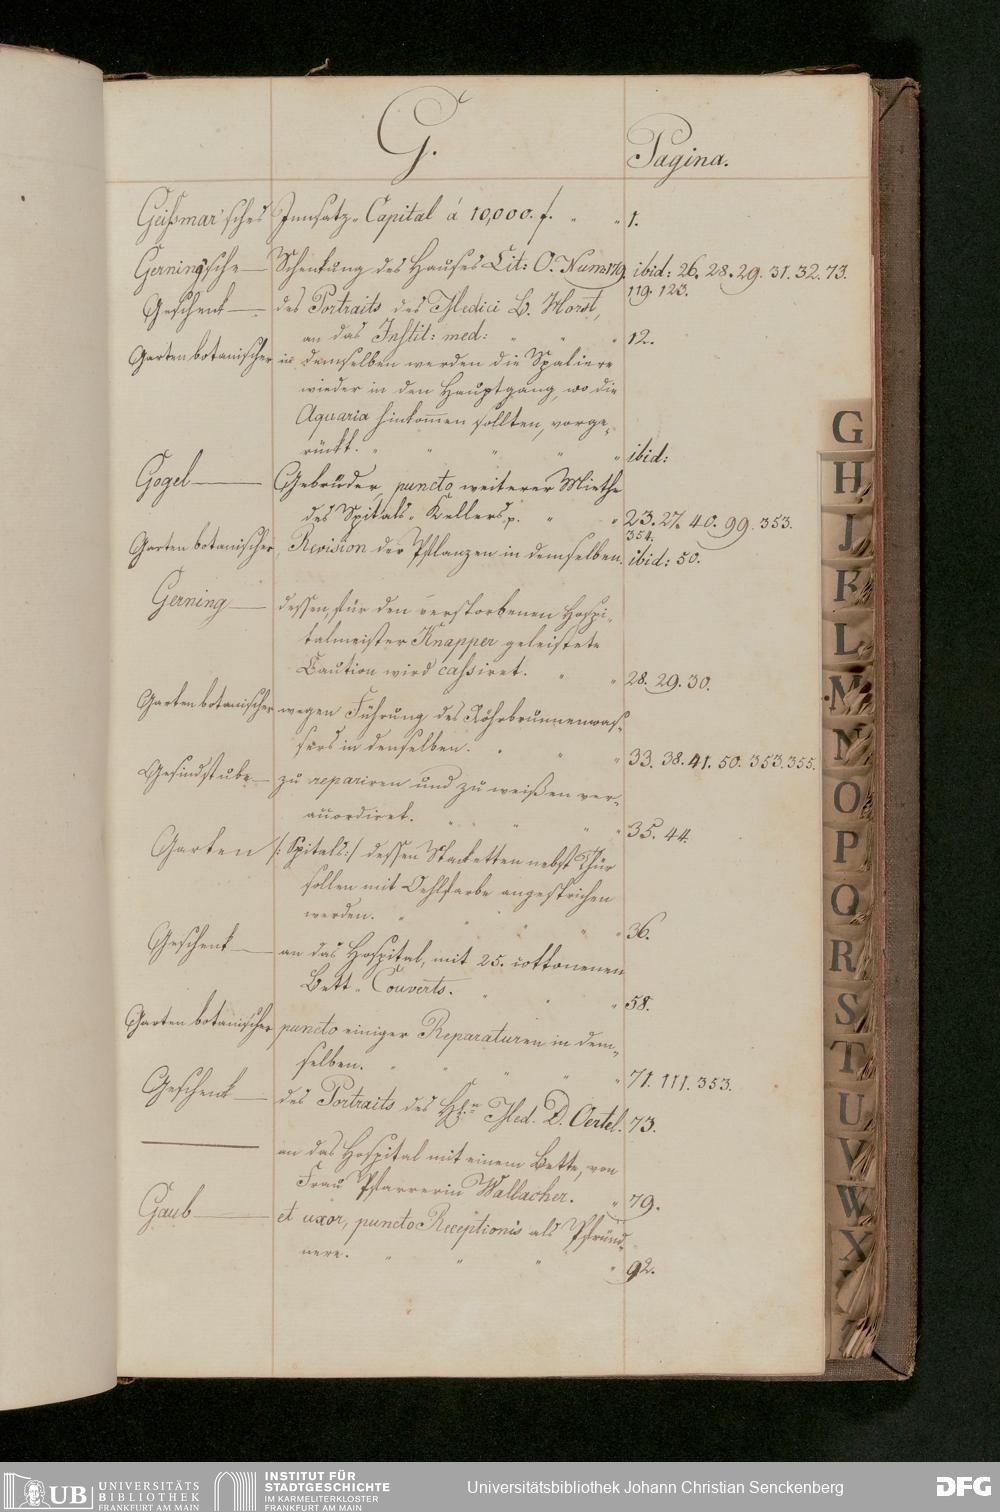 G.
Pagina.
Geißmar'sches Innsatz-Capital á 10,000. f. " " 1.
Gerningsche — Schenkung des Hauses Lit: O. Num 179. ibid: 26. 28. 29. 31. 32. 73.
119. 123.
Geschenk — des Portraits des Medici B. Horst,
an das Instit: med: " " " 12.
Garten botanischer in demselben werden die Spaliere
wieder in den Hauptgang, wo die
Aquaria hinkom̄en sollten, vorge-
rückt. " " " " " ibid:
Gogel — Gebrüder, puncto weiterer Miethe
des Spitals-Kellers p. " " 23. 27. 40. 99. 353.
354.
Garten botanischer Revision der Pflanzen in demselben. ibid: 50.
Gerning — dessen, für den verstorbenen Hospi-
talmeister Knapper geleistete
Caution wird cassiret. " " 28. 29. 30.
Garten botanischer wegen Führung des Röhrbrunnenwas-
sers in denselben. " " " 33. 38. 41. 50. 353. 355.
Gesindstube — zu repariren und zu weißen ver-
auordiret. " " " " 35. 44.
Garten /: Spitals :/ dessen Stacketten nebst Thür
sollen mit Oehlfarbe angestrichen
werden. " " " " " 36.
Geschenk — an das Hospital, mit 25. cottonenen
Bett-Couverts. " " " 58.
Garten botanischer puncto einiger Reparaturen in dem-
selben. " " " " " 71. 111. 353.
Geschenk — des Portraits des H. Med. D. Oertel. 73.
— an das Hospital mit einem Bette, von
Frau Pfarrerin Wallacher. " 79.
Gaub — et uxor, puncto Receptionis als Pfründ-
nere. " " " " 92.
G
H
J
K
L
M
N
O
P
Q
R
S
T
U
V
W
X
UB UNIVERSITÄTS
BIBLIOTHEK
FRANKFURT AM MAIN
INSTITUT FÜR
STADTGESCHICHTE
IM KARMELITERKLOSTER
FRANKFURT AM MAIN
Universitätsbibliothek Johann Christian Senckenberg
DFG